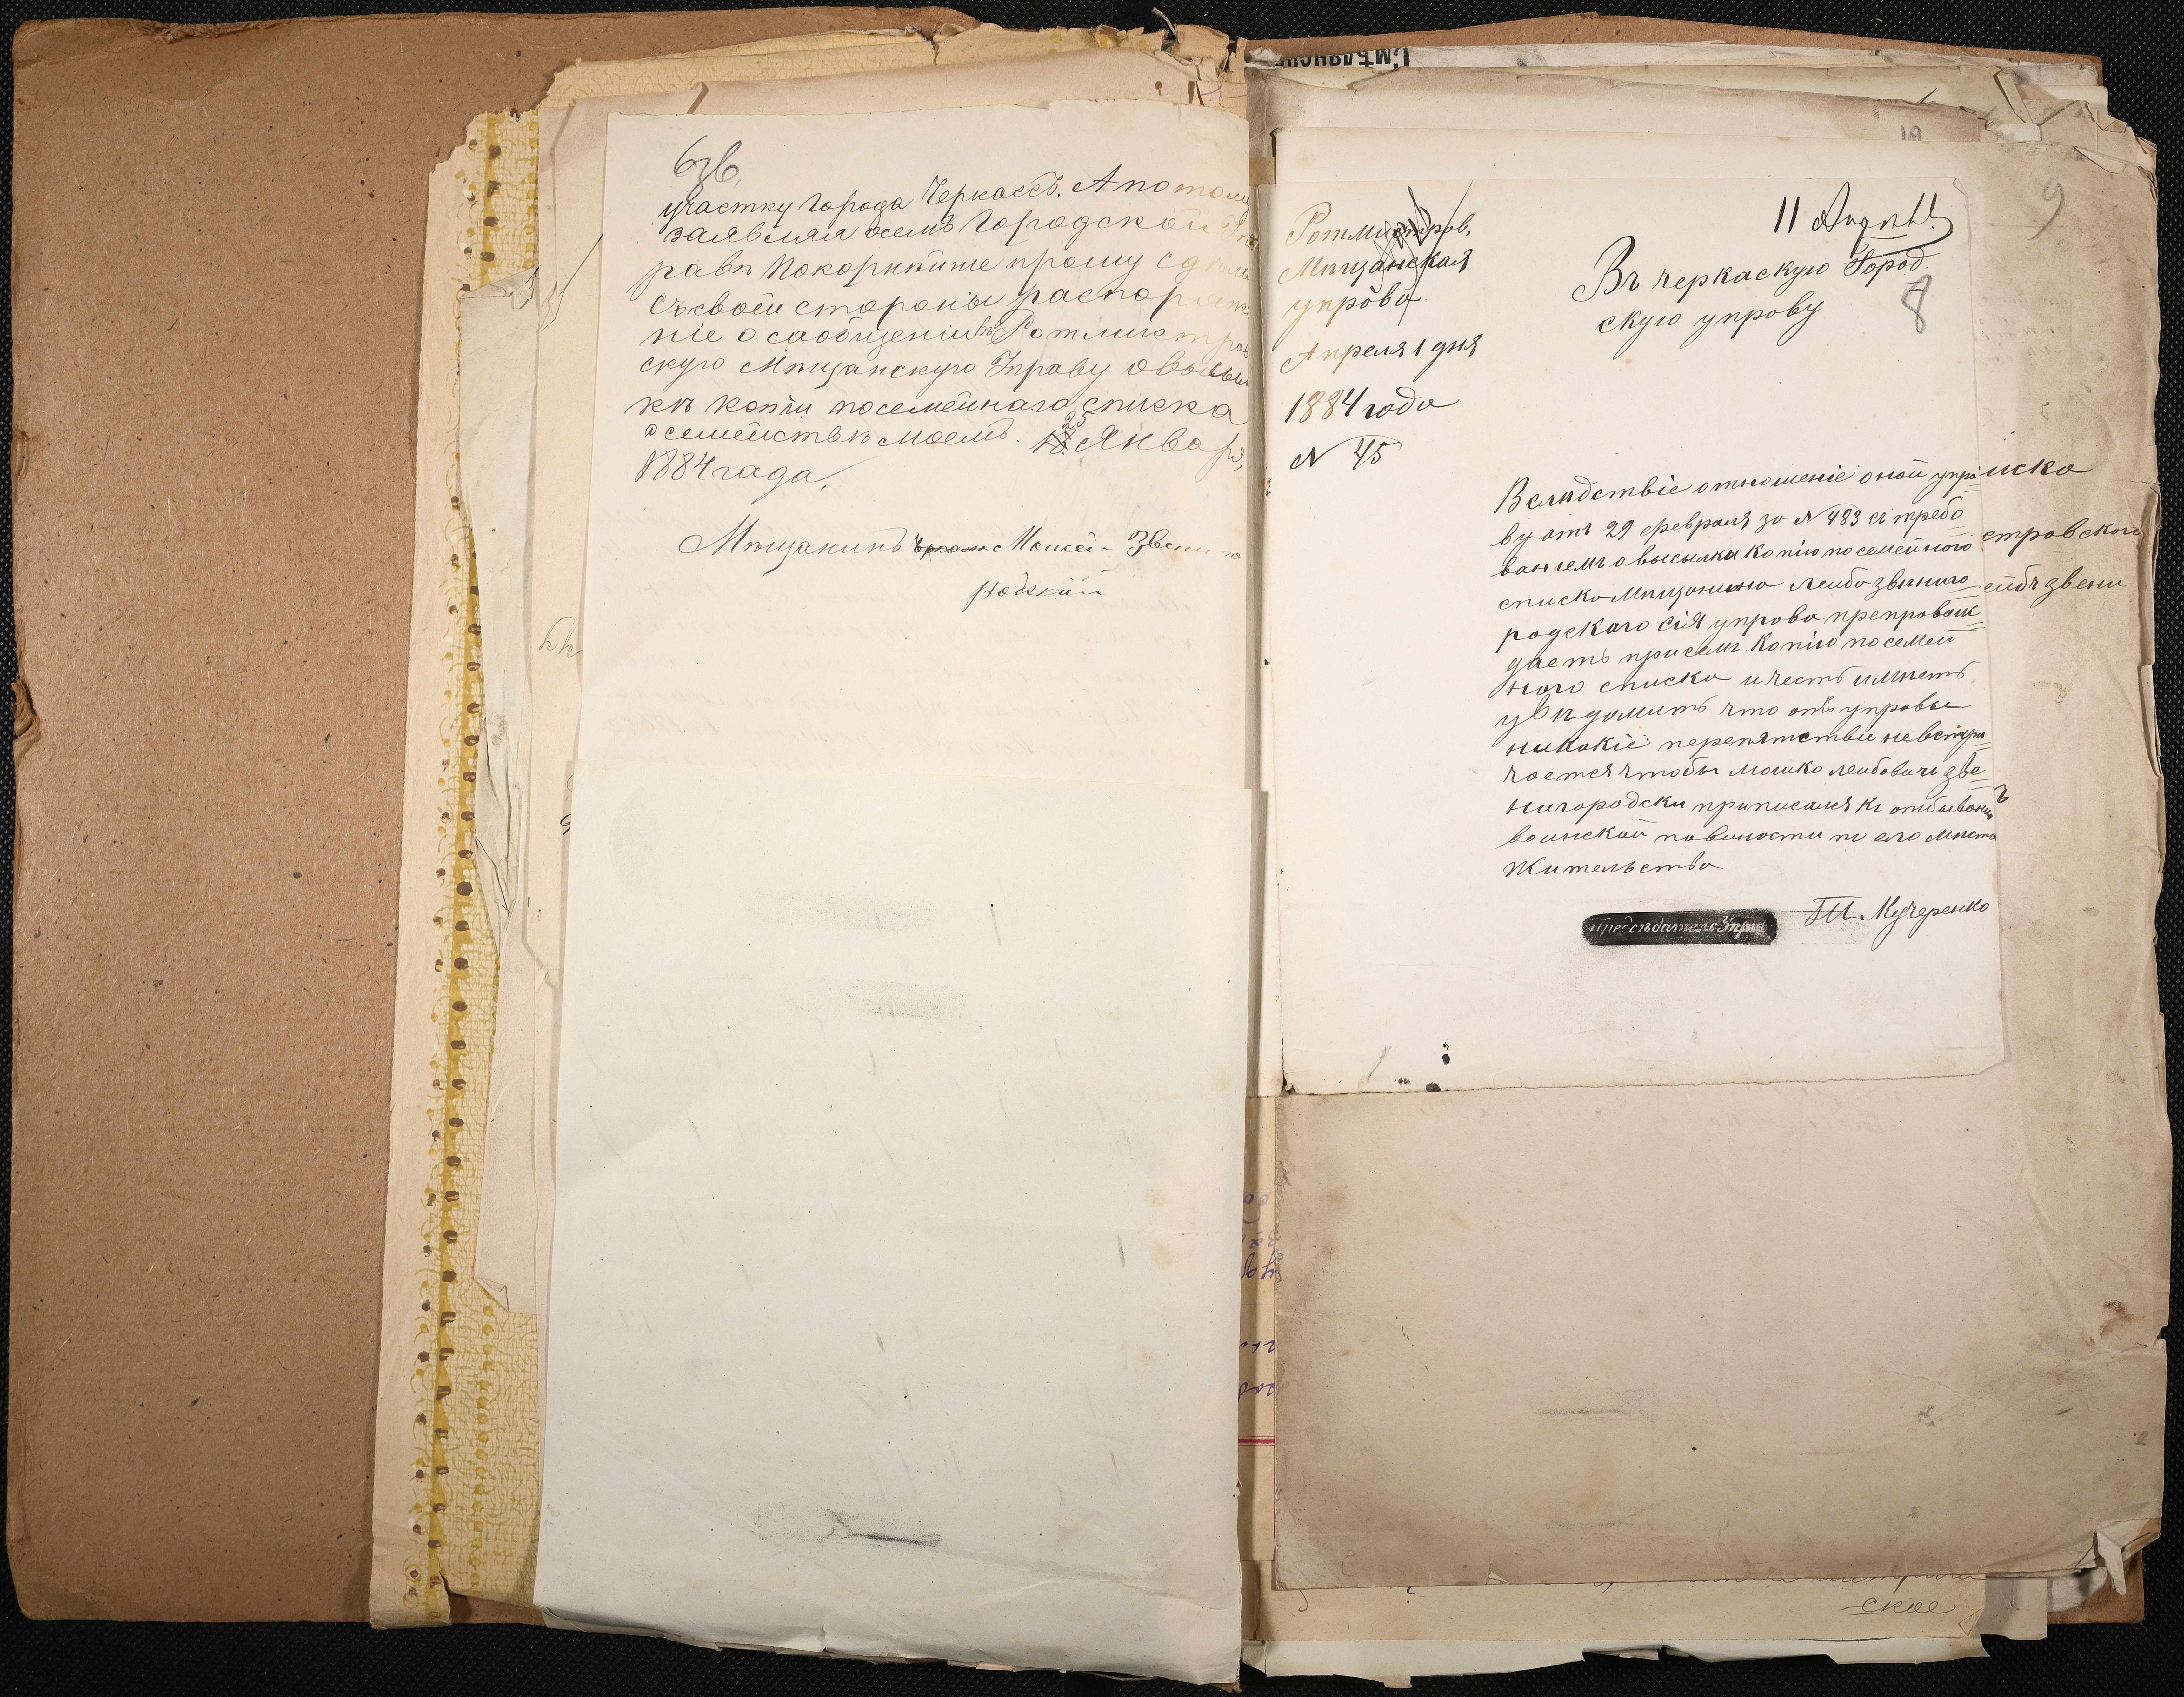 участку города Черкассъ. А потому
заявляя осемъ Городской Уп
равѣ покорнѣйше прошу сдѣла
съ своей стороны распоряже
ніе о сообщеніи въ Ротмистров
скую Мѣщанскую Управу о высыл
кѣ копіи посемейнаго списка
о семействѣ моемъ. 25 Января
1884 года.
Мѣщанинъ Моисей Звениго
родскій
9
11 Апрѣл.
8
Ротмистров.
Мѣщанская
управа
Апреля 1 дня
1884 года
N 45
Въ черкаскую Город
скую управу
Вслѣдствіе отношеніе оной упра
ву отъ 29 февраля за N 483 съ требо
ваніемъ о высылки копію посемейного
списка мѣщанина лейба звениго
родскаго сія управа препровож
даетъ присемъ копію посемей
ного списка и честь имѣетъ
увѣдомить что отъ управы
никакіе перепятствіе не встрѣ
чается чтобы мошко лейбовичъ зве
нигородски приписался къ отбыванію
воинской повиности по его мѣсто
жительства
Предсѣдатель Упра
Кучеренко
иска
стровского
ейбъ звени
ское